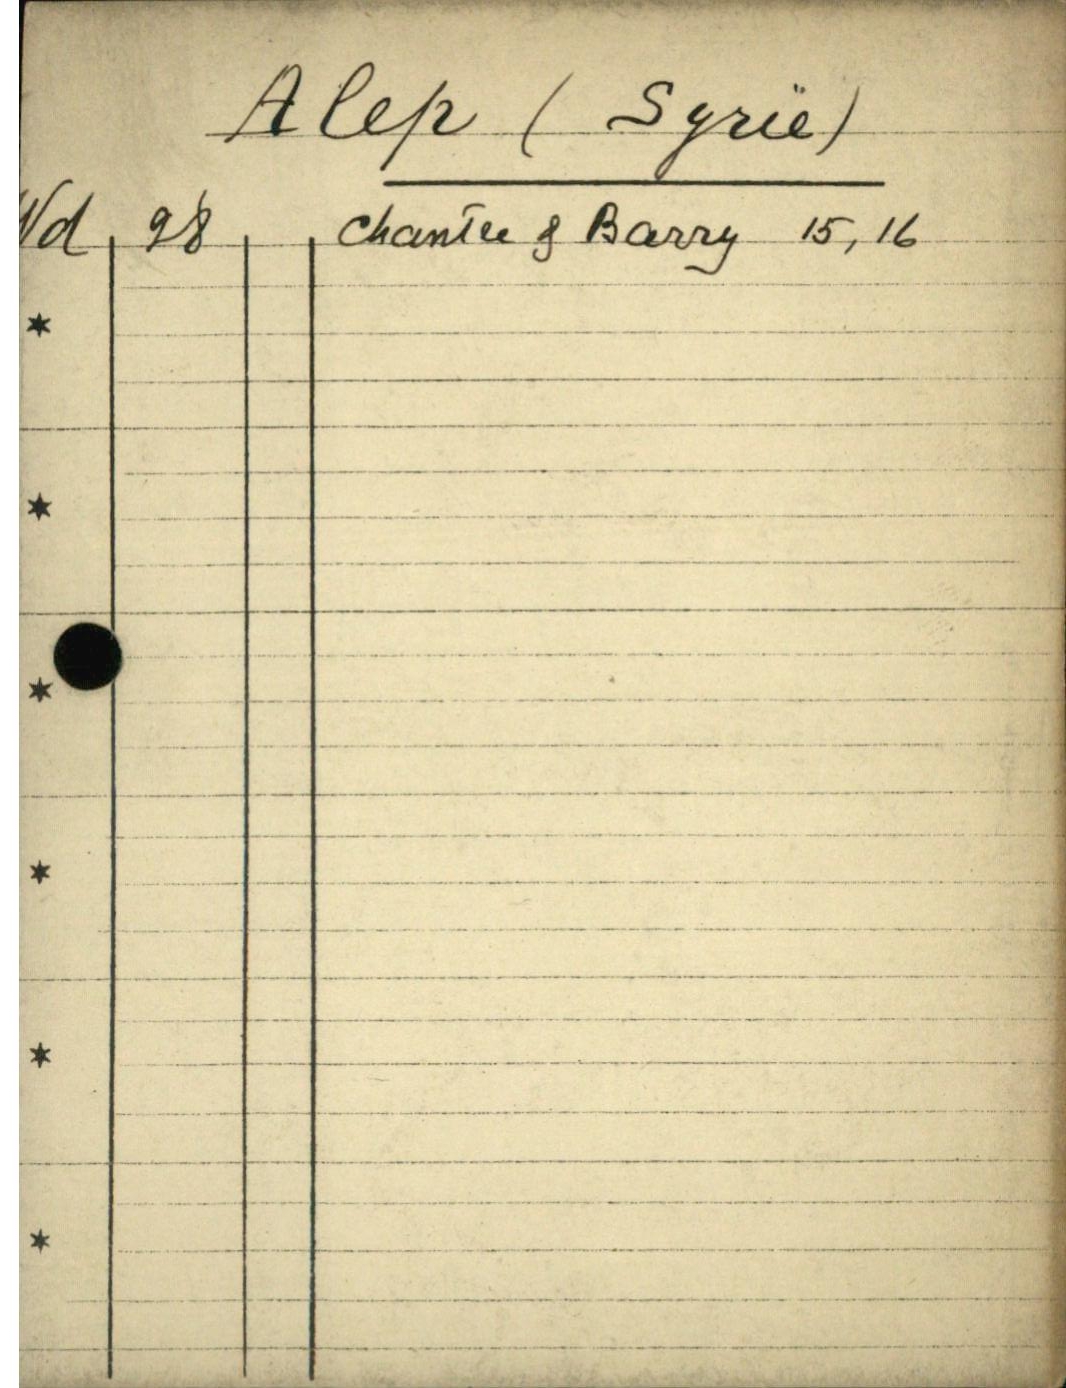 Alep (Syrië)
Wd 28 Chantee & Barry 15, 16